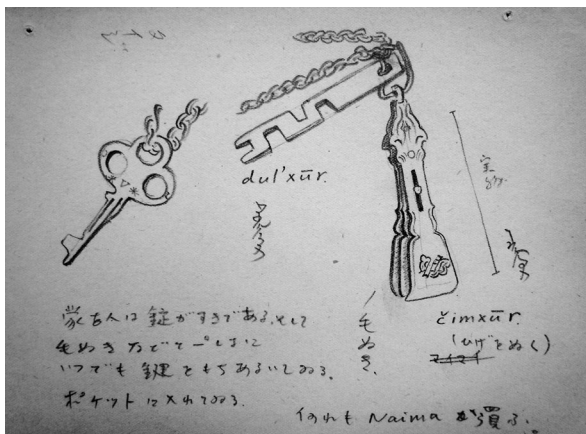 dul'xūr.
実物
毛ぬき.
čimxūr.
(ひげをぬく)
蒙古人は錠がすきである。そして
毛ぬきなどと一しょに
いつでも鍵をもちあるいてゐる.
ポケットに入れてゐる.
何れも Naima から買ふ.